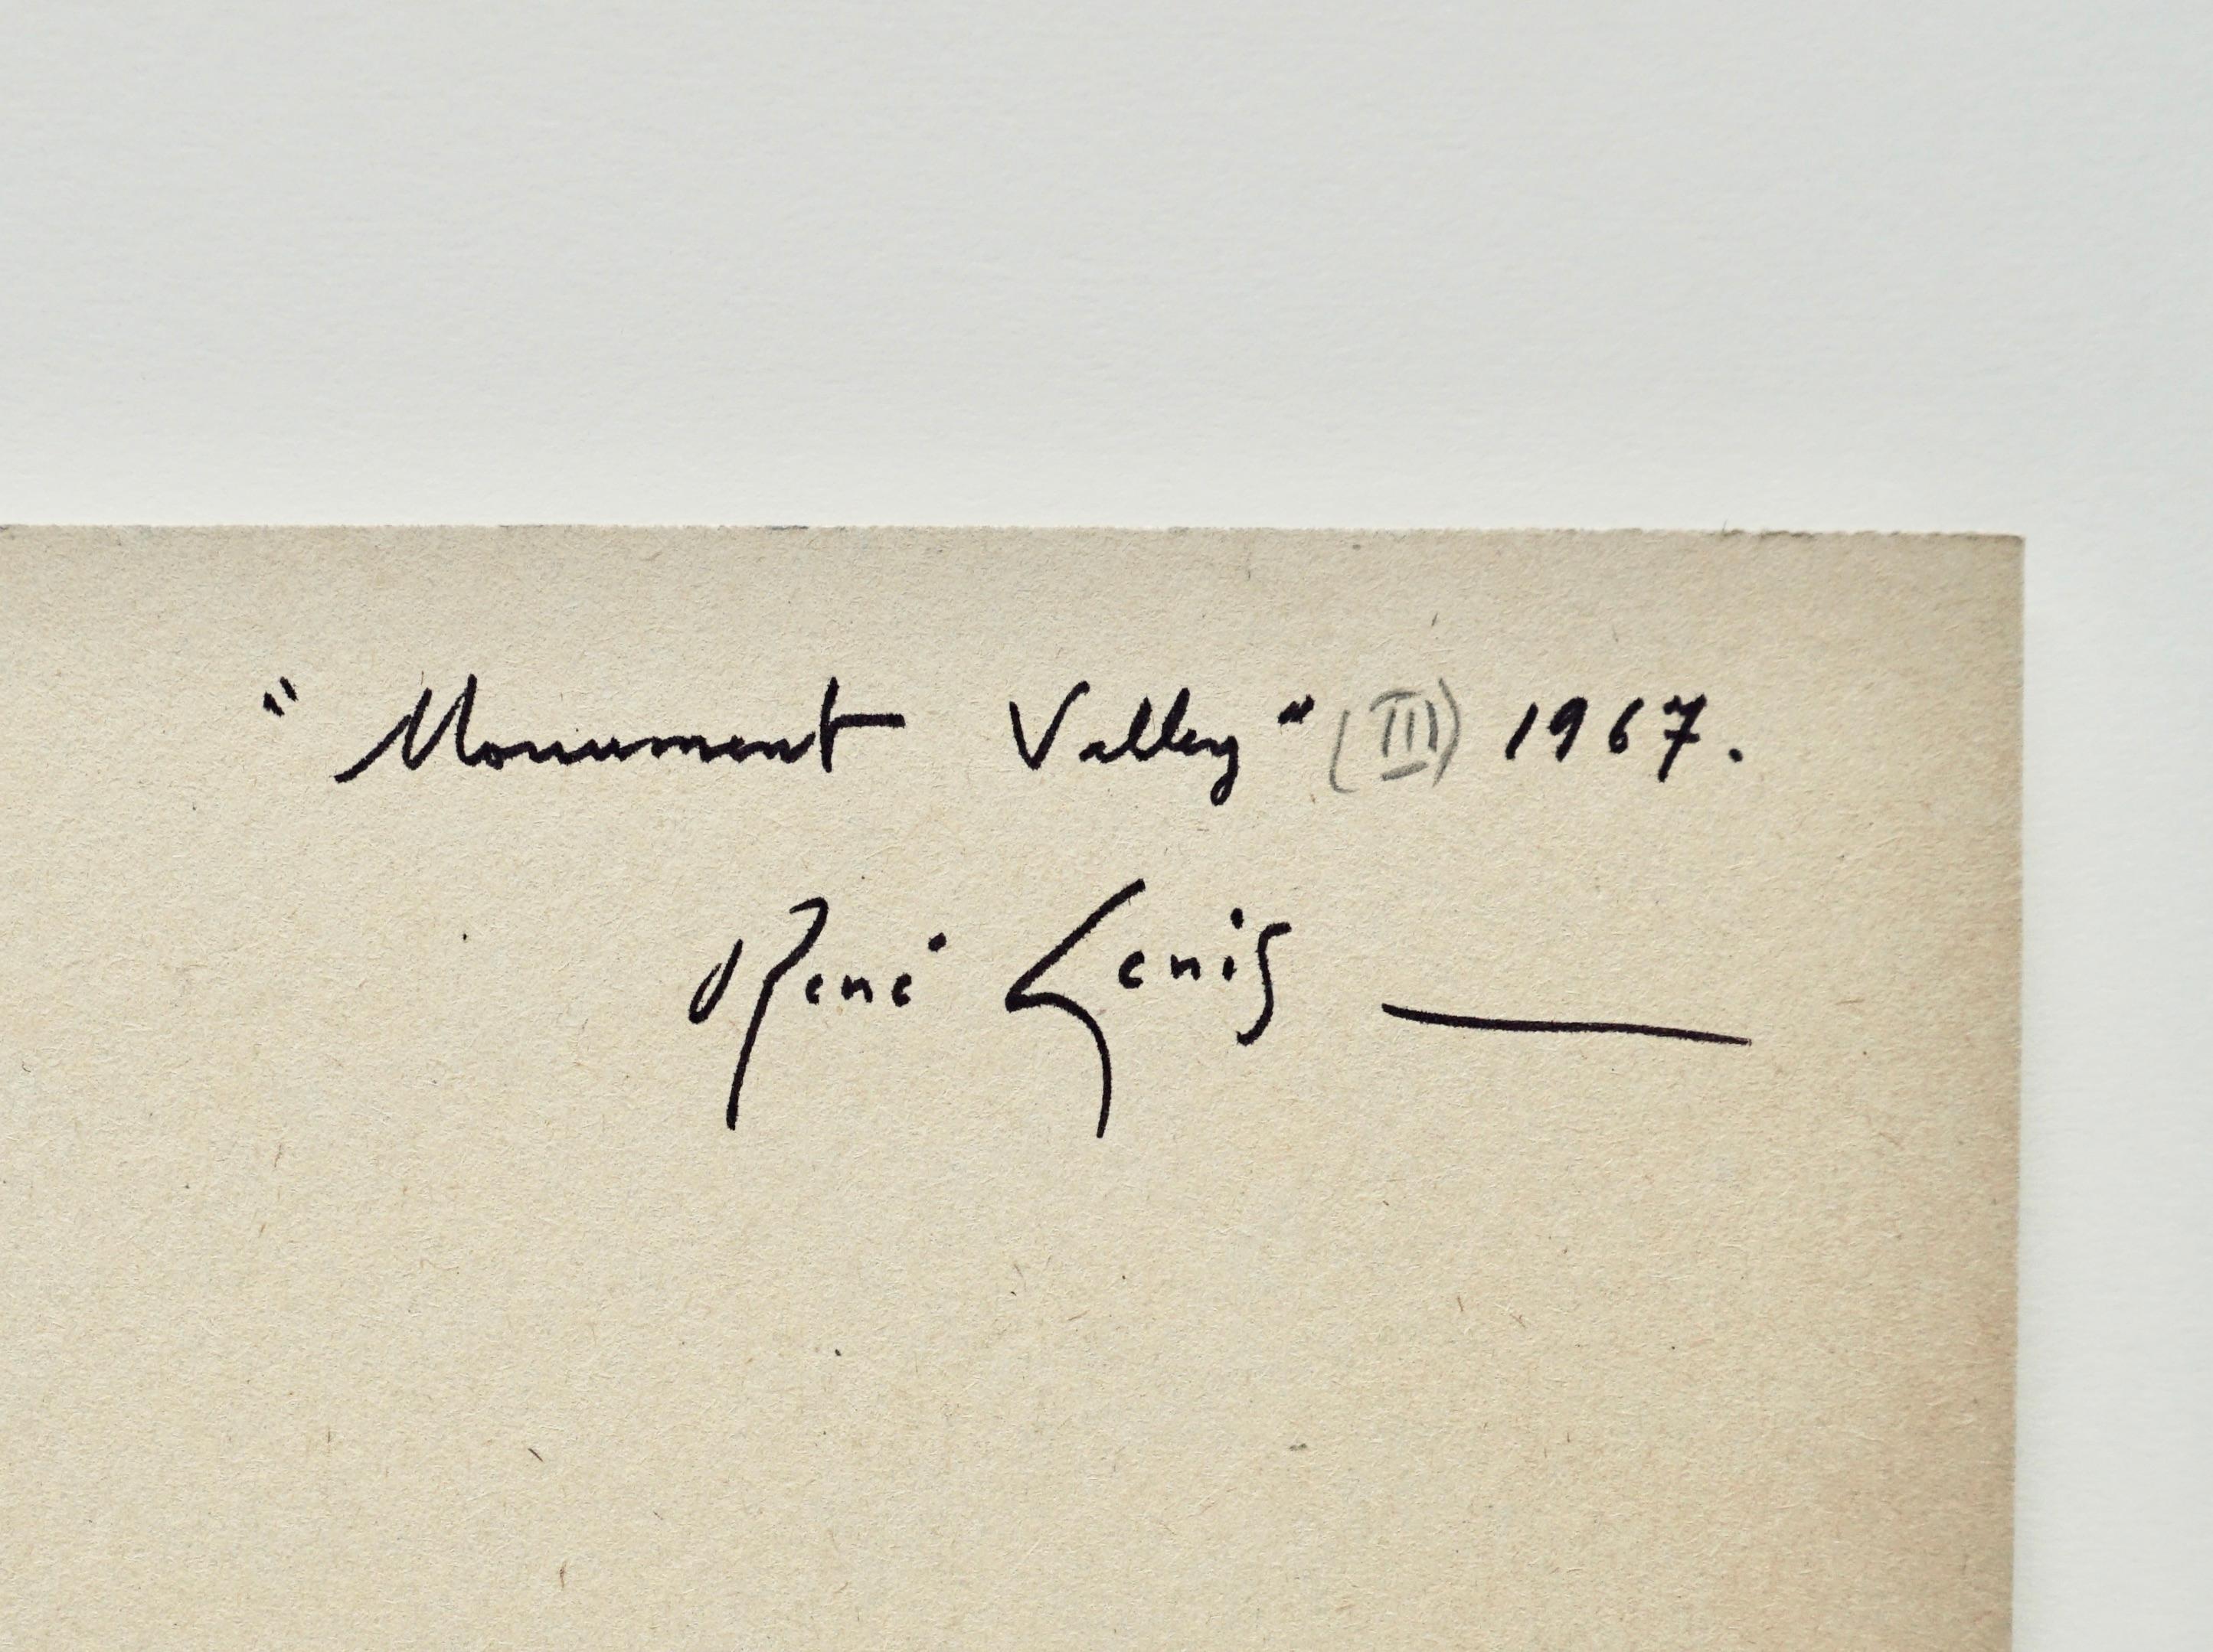 "Monument Valley" (III) 1967.
René Genis